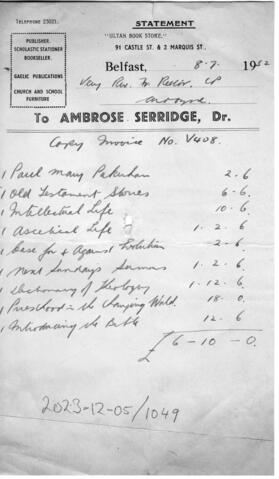 TELEPHONE 23021.
STATEMENT
"ULTAN BOOK STORE,"
91 CASTLE ST. & 2 MARQUIS ST.,
PUBLISHER.
SCHOLASTIC STATIONER
BOOKSELLER.
GAELIC PUBLICATIONS
CHURCH AND SCHOOL
FURNITURE
Belfast, 8-7- 1952
Very Rev. Fr. Rector, CP
Ardoyne.
To AMBROSE SERRIDGE, Dr.
Copy Invoice No. V408.
1 Paul Mary Pakenham 2-6
1 Old Testament Stories 6-6
1 Intellectual Life 10-6
1 Ascetical Life 1-2-6
1 Case for & Against Evolution 2-6
1 Next Sundays Sermons 1-2-6
1 Dictionary of Theology 1-12-6
1 Priesthood in the Changing World. 18-0
1 Introducing the Bible 12-6
£6-10-0.
2023-12-05/1049